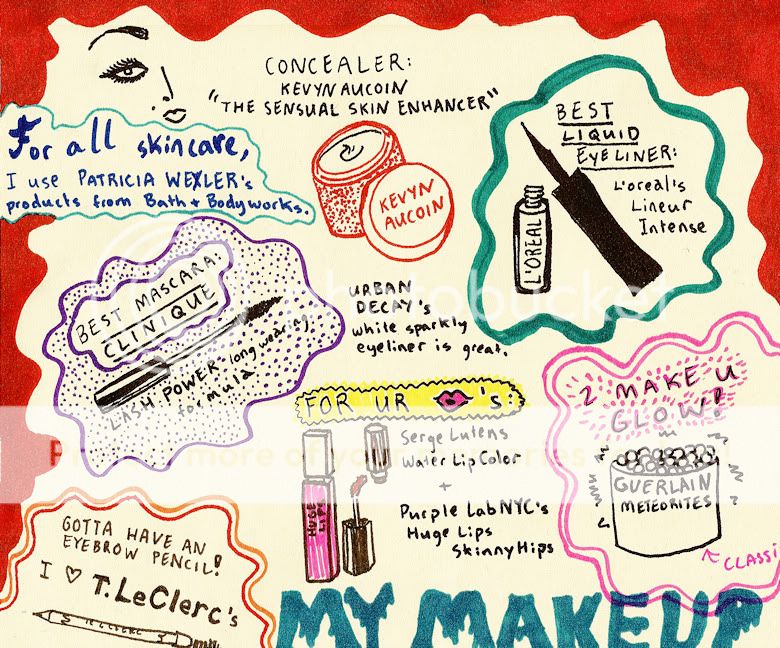 CONCEALER:
KEVYN AUCOIN
"THE SENSUAL SKIN ENHANCER"
KEVYN
AUCOIN
For all skincare,
I use PATRICIA WEXLER's
products from Bath + Bodyworks.
BEST
LIQUID
EYELINER:
L'oreal's
Lineur
Intense
L'OREAL
BEST MASCARA:
CLINIQUE
LASH POWER - long wearing
formula
URBAN
DECAY's
while sparkly
eyeliner is great.
FOR UR 's:
Serge Lutens
Water Lip Color
+
Purple Lab NYC's
Huge Lips
Skinny Hips
HUGE
LIPS
2 MAKE U
GLOW!
GUERLAIN
METEORITES
CLASSI
GOTTA HAVE AN
EYEBROW PENCIL!
I ♡ T.LeClerc's
MY MAKEUP
photobucket